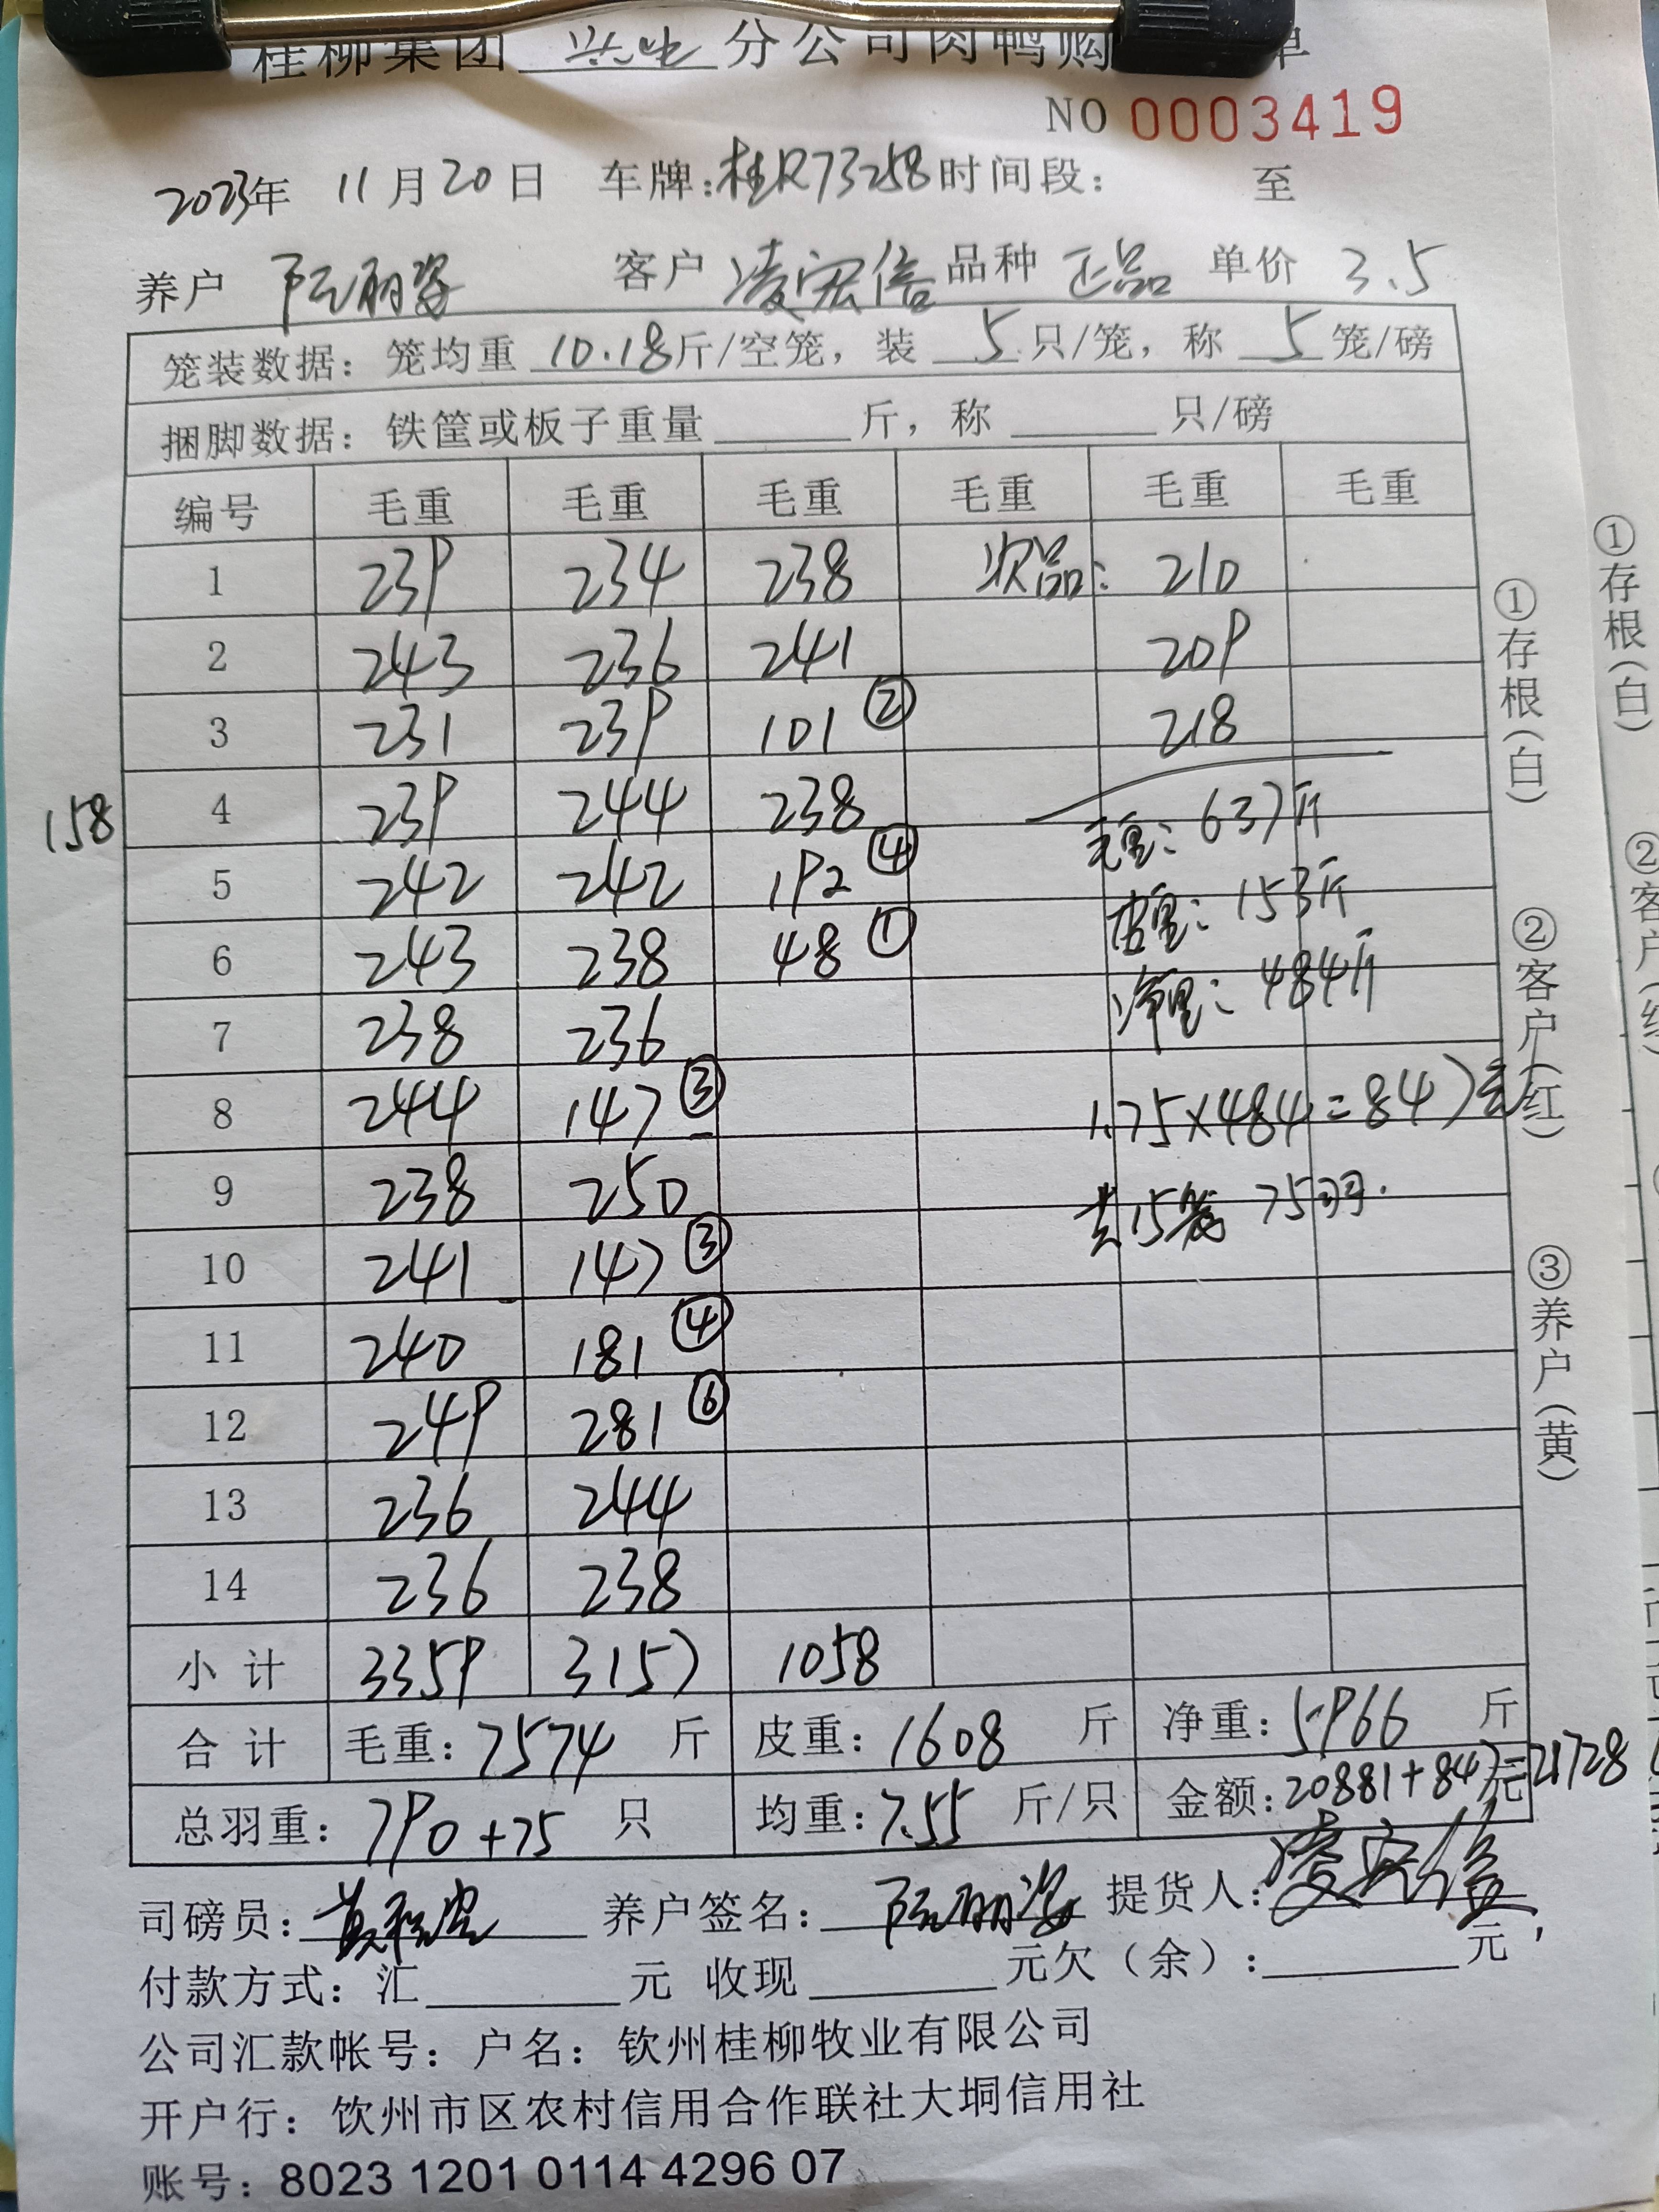 桂柳集团 分公司肉鸭购 单
NO 0003419
2023年 11月20日 车牌:桂R73258 时间段: 至
养户 阮丽姿 客户 凌宏信 品种 正品 单价 3.5
笼装数据: 笼均重 10.18 斤/空笼, 装 5 只/笼, 称 5 笼/磅
捆脚数据: 铁筐或板子重量 斤, 称 只/磅
编号 毛重 毛重 毛重 毛重 毛重 毛重
1 239 234 238 次品: 210
2 243 236 241 209
3 231 239 101 ② 218
158 4 239 244 238 毛重: 637斤
5 242 242 192 ④ 皮重: 153斤
6 243 238 48 ① 净重: 484斤
7 238 236
8 244 147 ③ 1.75×484=847元
9 238 250 共15笼 75羽.
10 241 147 ③
11 240 181 ④
12 249 281 ⑥
13 236 244
14 236 238
小 计 3359 3157 1058
合 计 毛重: 7574 斤 皮重: 1608 斤 净重: 5966 斤
总羽重: 790+75 只 均重: 7.55 斤/只 金额: 20881+847元=21728
司磅员: 养户签名: 阮丽姿 提货人: 凌宏信
付款方式: 汇 元 收现 元欠(余): 元,
公司汇款帐号: 户名: 钦州桂柳牧业有限公司
开户行: 钦州市区农村信用合作联社大垌信用社
账号: 8023 1201 0114 4296 07
①存根(白) ②客户(红) ③养户(黄)
①存根(白) ②客户(红)